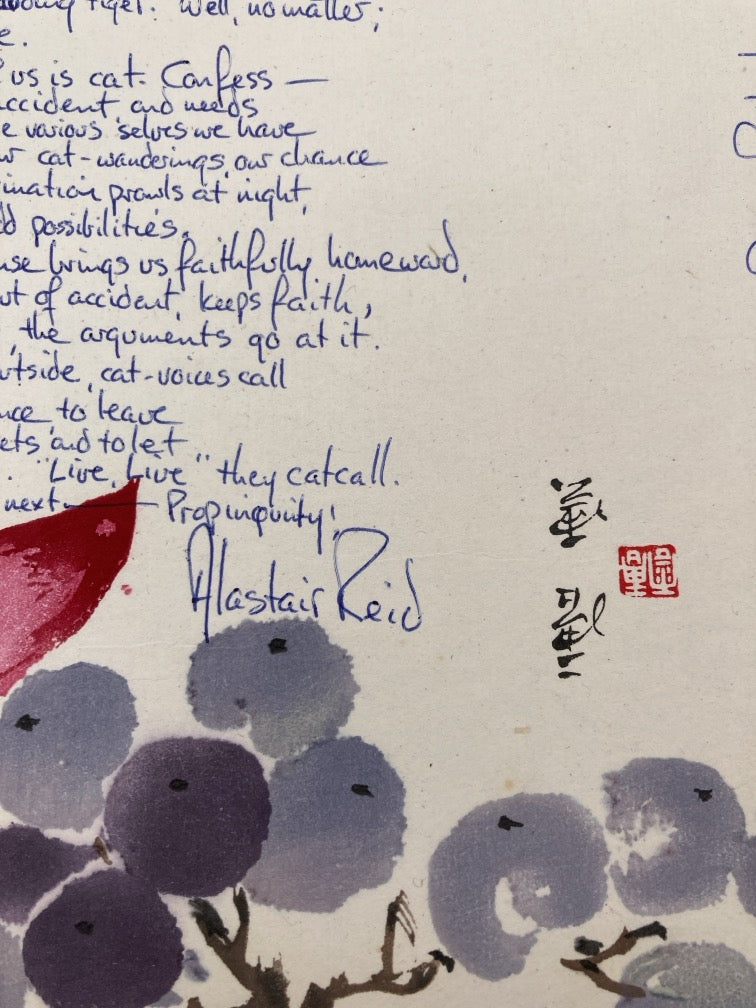 tiger. Well, no matter;
e.
us is cat. Confess —
accident and needs
e various selves we have
ur cat-wanderings, our chance
ination prowls at night,
possibilities.
nse brings us faithfully homeward,
ut of accident, keeps faith,
, the arguments go at it.
utside, cat-voices call
nce to leave
ets and to let
. "Live, Live" they catcall.
next — Propinquity!
Alastair Reid